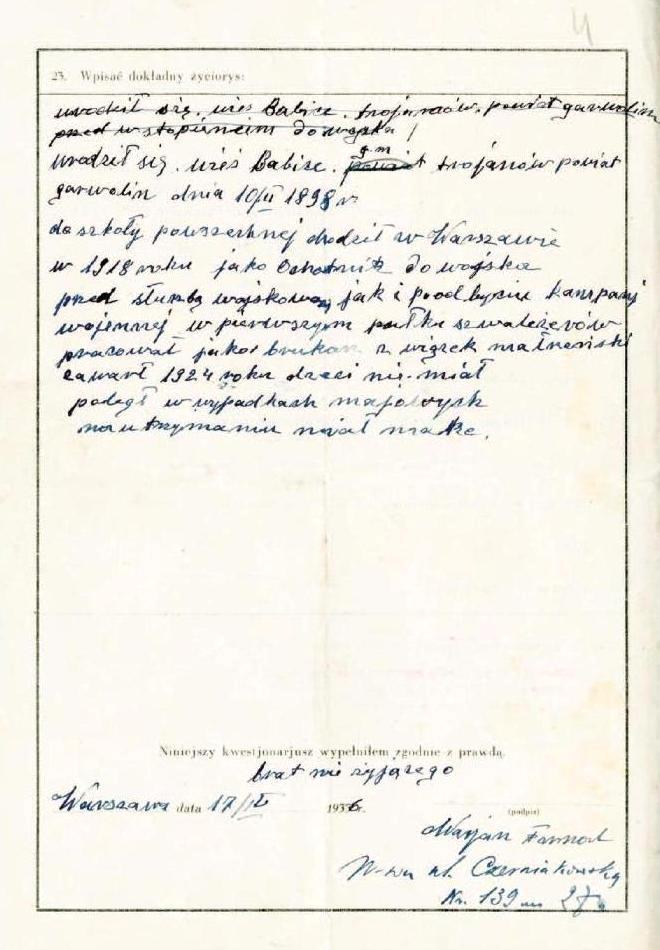 4
23. Wpisać dokładny życiorys:
urodził się. wieś Babice. trojanów. powiat garwolin
przed wstąpieniem do wojska /
g.m
urodził się. wieś Babice. powiat trojanów powiat
garwolin dnia 10/II 1898 r
do szkoły powszechnej chodził w Warszawie
w 1918 roku jako Ochotnik do wojska
przed służbą wojskową jak i po odbyciu kampanj
wojennej w pierwszym pułku szwależerów
pracował jako brukarz z wiązek małżeński
zawarł 1924 roku dzieci nie miał
poległ w wypadkach majowych
na utrzymaniu miał matkę.
Niniejszy kwestjonarjusz wypełniłem zgodnie z prawdą.
brat nie żyjącego
Warszawa data 17/IV 1936r.
(podpis)
Marjan
W-wa ul. Czerniakowska
Nr. 139 m 27